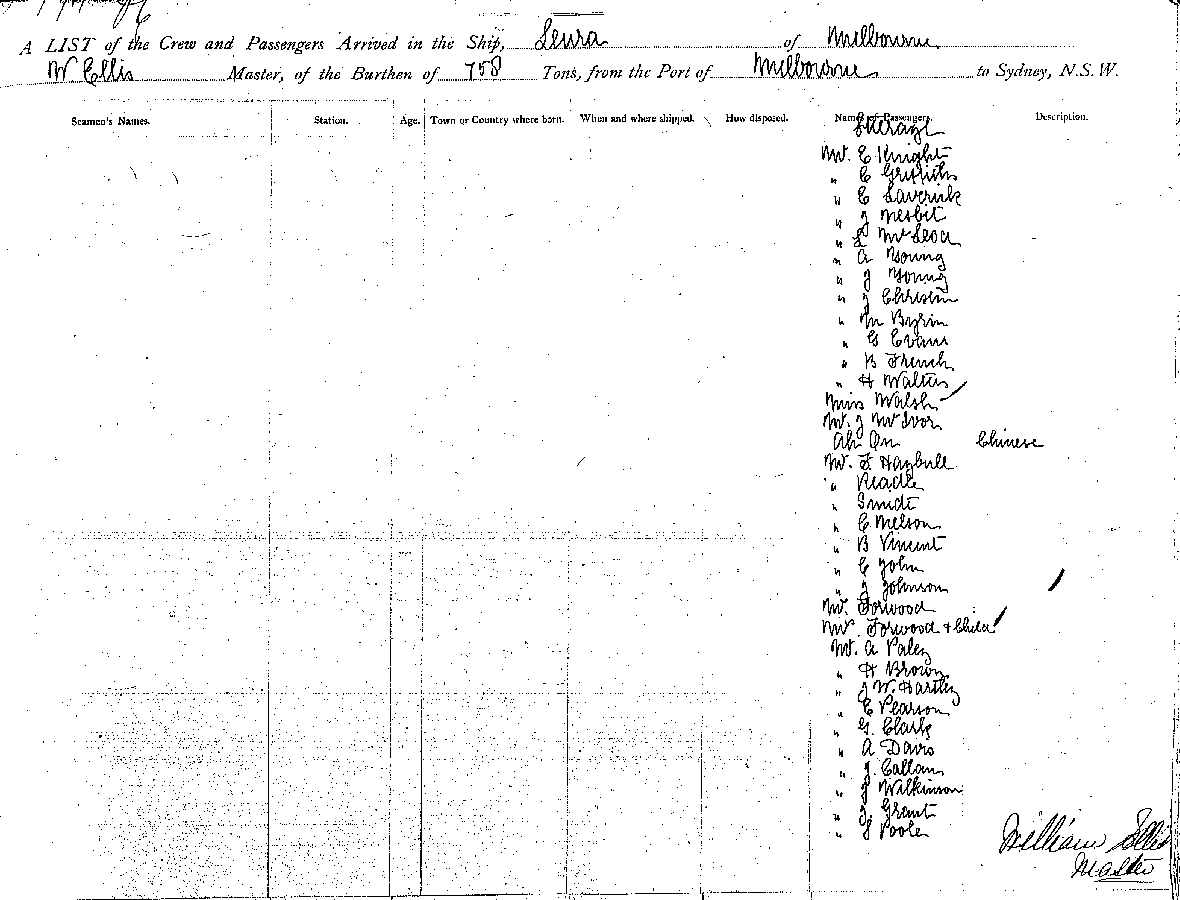 A LIST of the Crew and Passengers Arrived in the Ship, Leura of Melbourne
W Ellis Master, of the Burthen of 758 Tons, from the Port of Melbourne to Sydney, N.S.W.
Seamen's Names. Station. Age. Town or Country where born. When and where shipped. How disposed. Names of Passengers. Description.
Steerage
Mr. E Knight
" C Griffiths
" E Laverick
" J Nesbit
" L McLeod
" A Young
" J Young
" J Christin
" M Byrin
" G Evans
" B French
" H Walters
Miss Walsh
Mr. J McIvor
Ah On Chinese
Mr. F. Haybull
" Readle
" Smidt
" C Nelson
" B Vincent
" C John
" J Johnson
Mr. Forwood
Mrs Forwood + Child
Mr. A Paley
" H Brown
" J W. Hartley
" E Pearson
" G. Clark
" A Davis
" J. Callan
" J Wilkinson
" J. Grant
" J Poole
William Ellis
Master